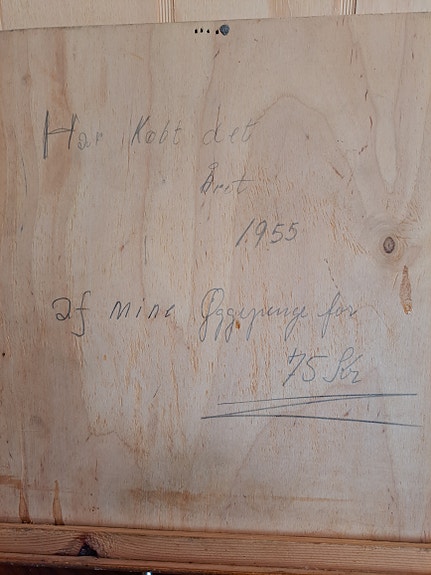 Har Købt det
Året
1955
af mine Æggepenge for
75 Kr